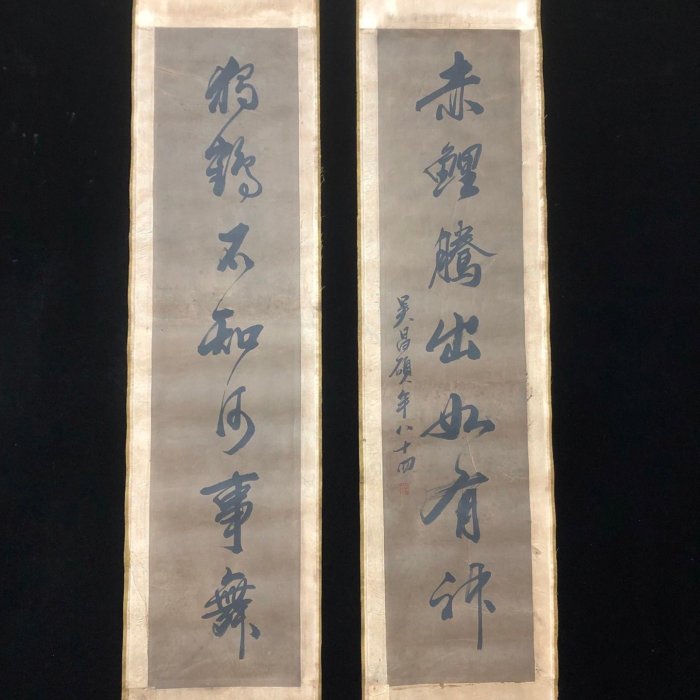 赤鯉騰出如有神
吳昌碩年八十四
獨鶴不知何事舞